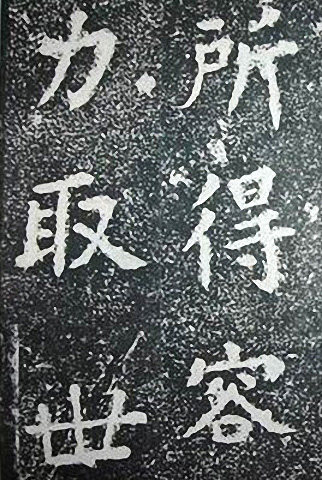 所得容
力取世